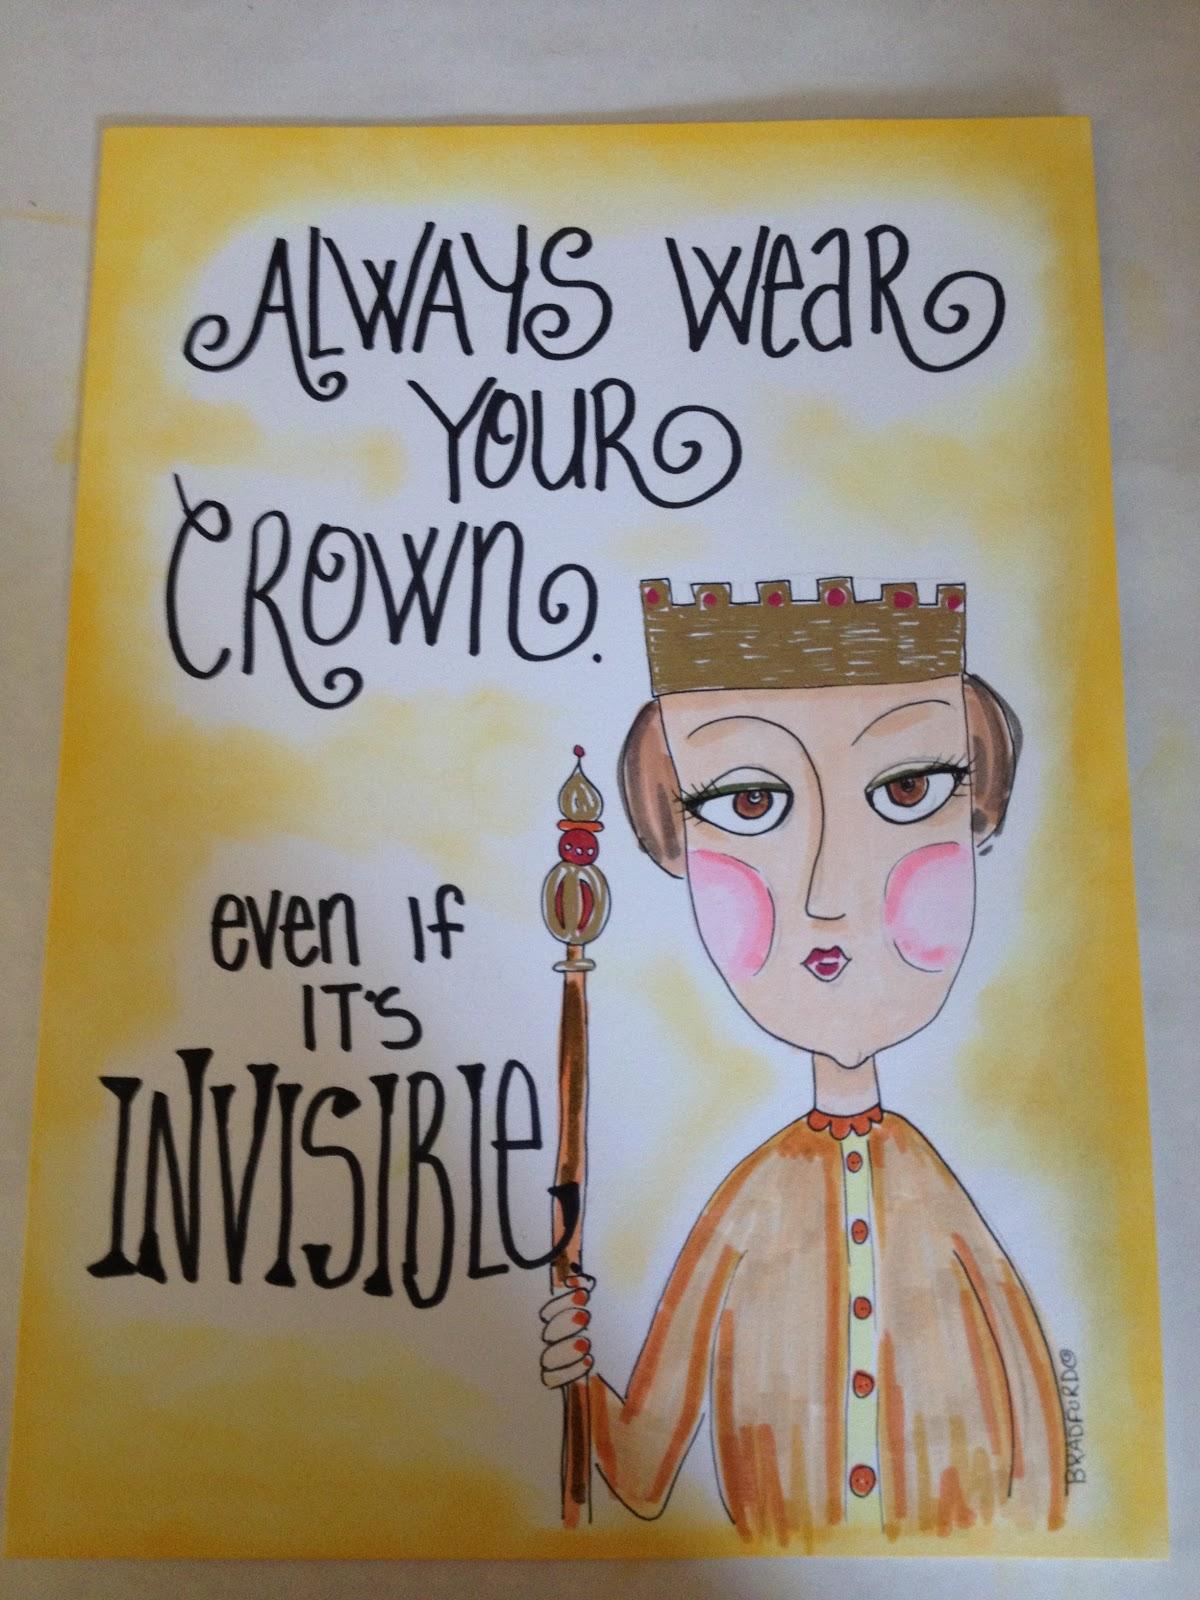 ALWAYS WEaR
YOUR
CROWN.
even If
IT'S
INVISIBLe.
BRADFORD©